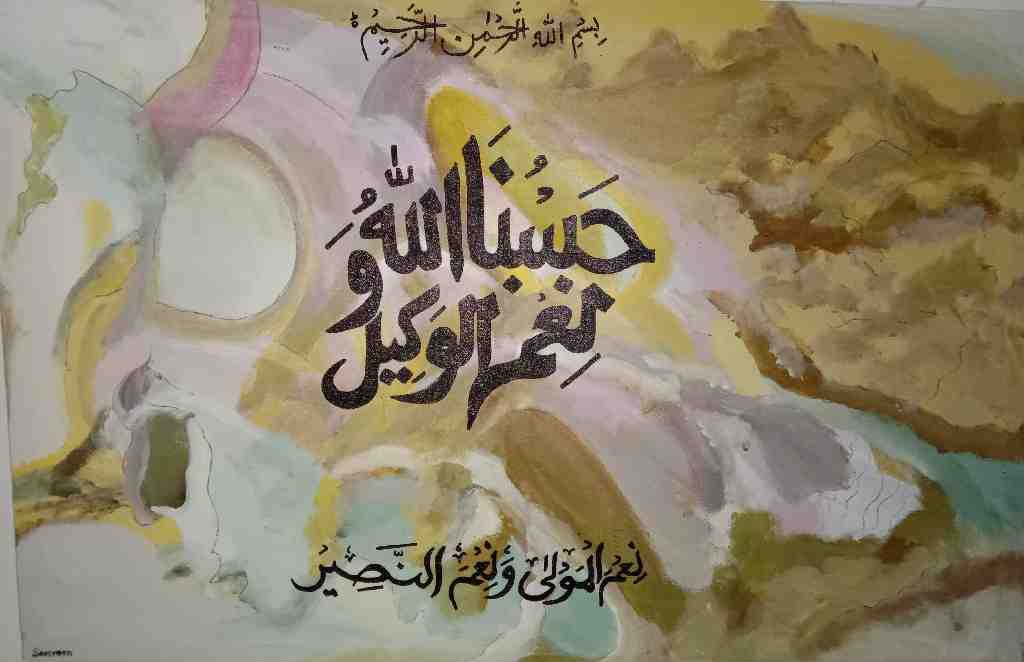 بِسْمِ اللهِ الرَّحْمٰنِ الرَّحِيْمِ
حَسْبُنَا اللّٰهُ وَ
نِعْمَ الْوَكِيْل
نِعْمَ الْمَوْلٰى وَ نِعْمَ النَّصِيْرُ